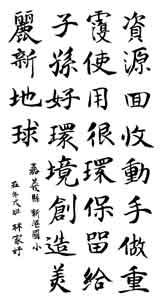 資源回收動手做重
覆使用很環保留給
子孫好環境創造美
麗新地球
嘉義縣新港國小
年班 林家妤